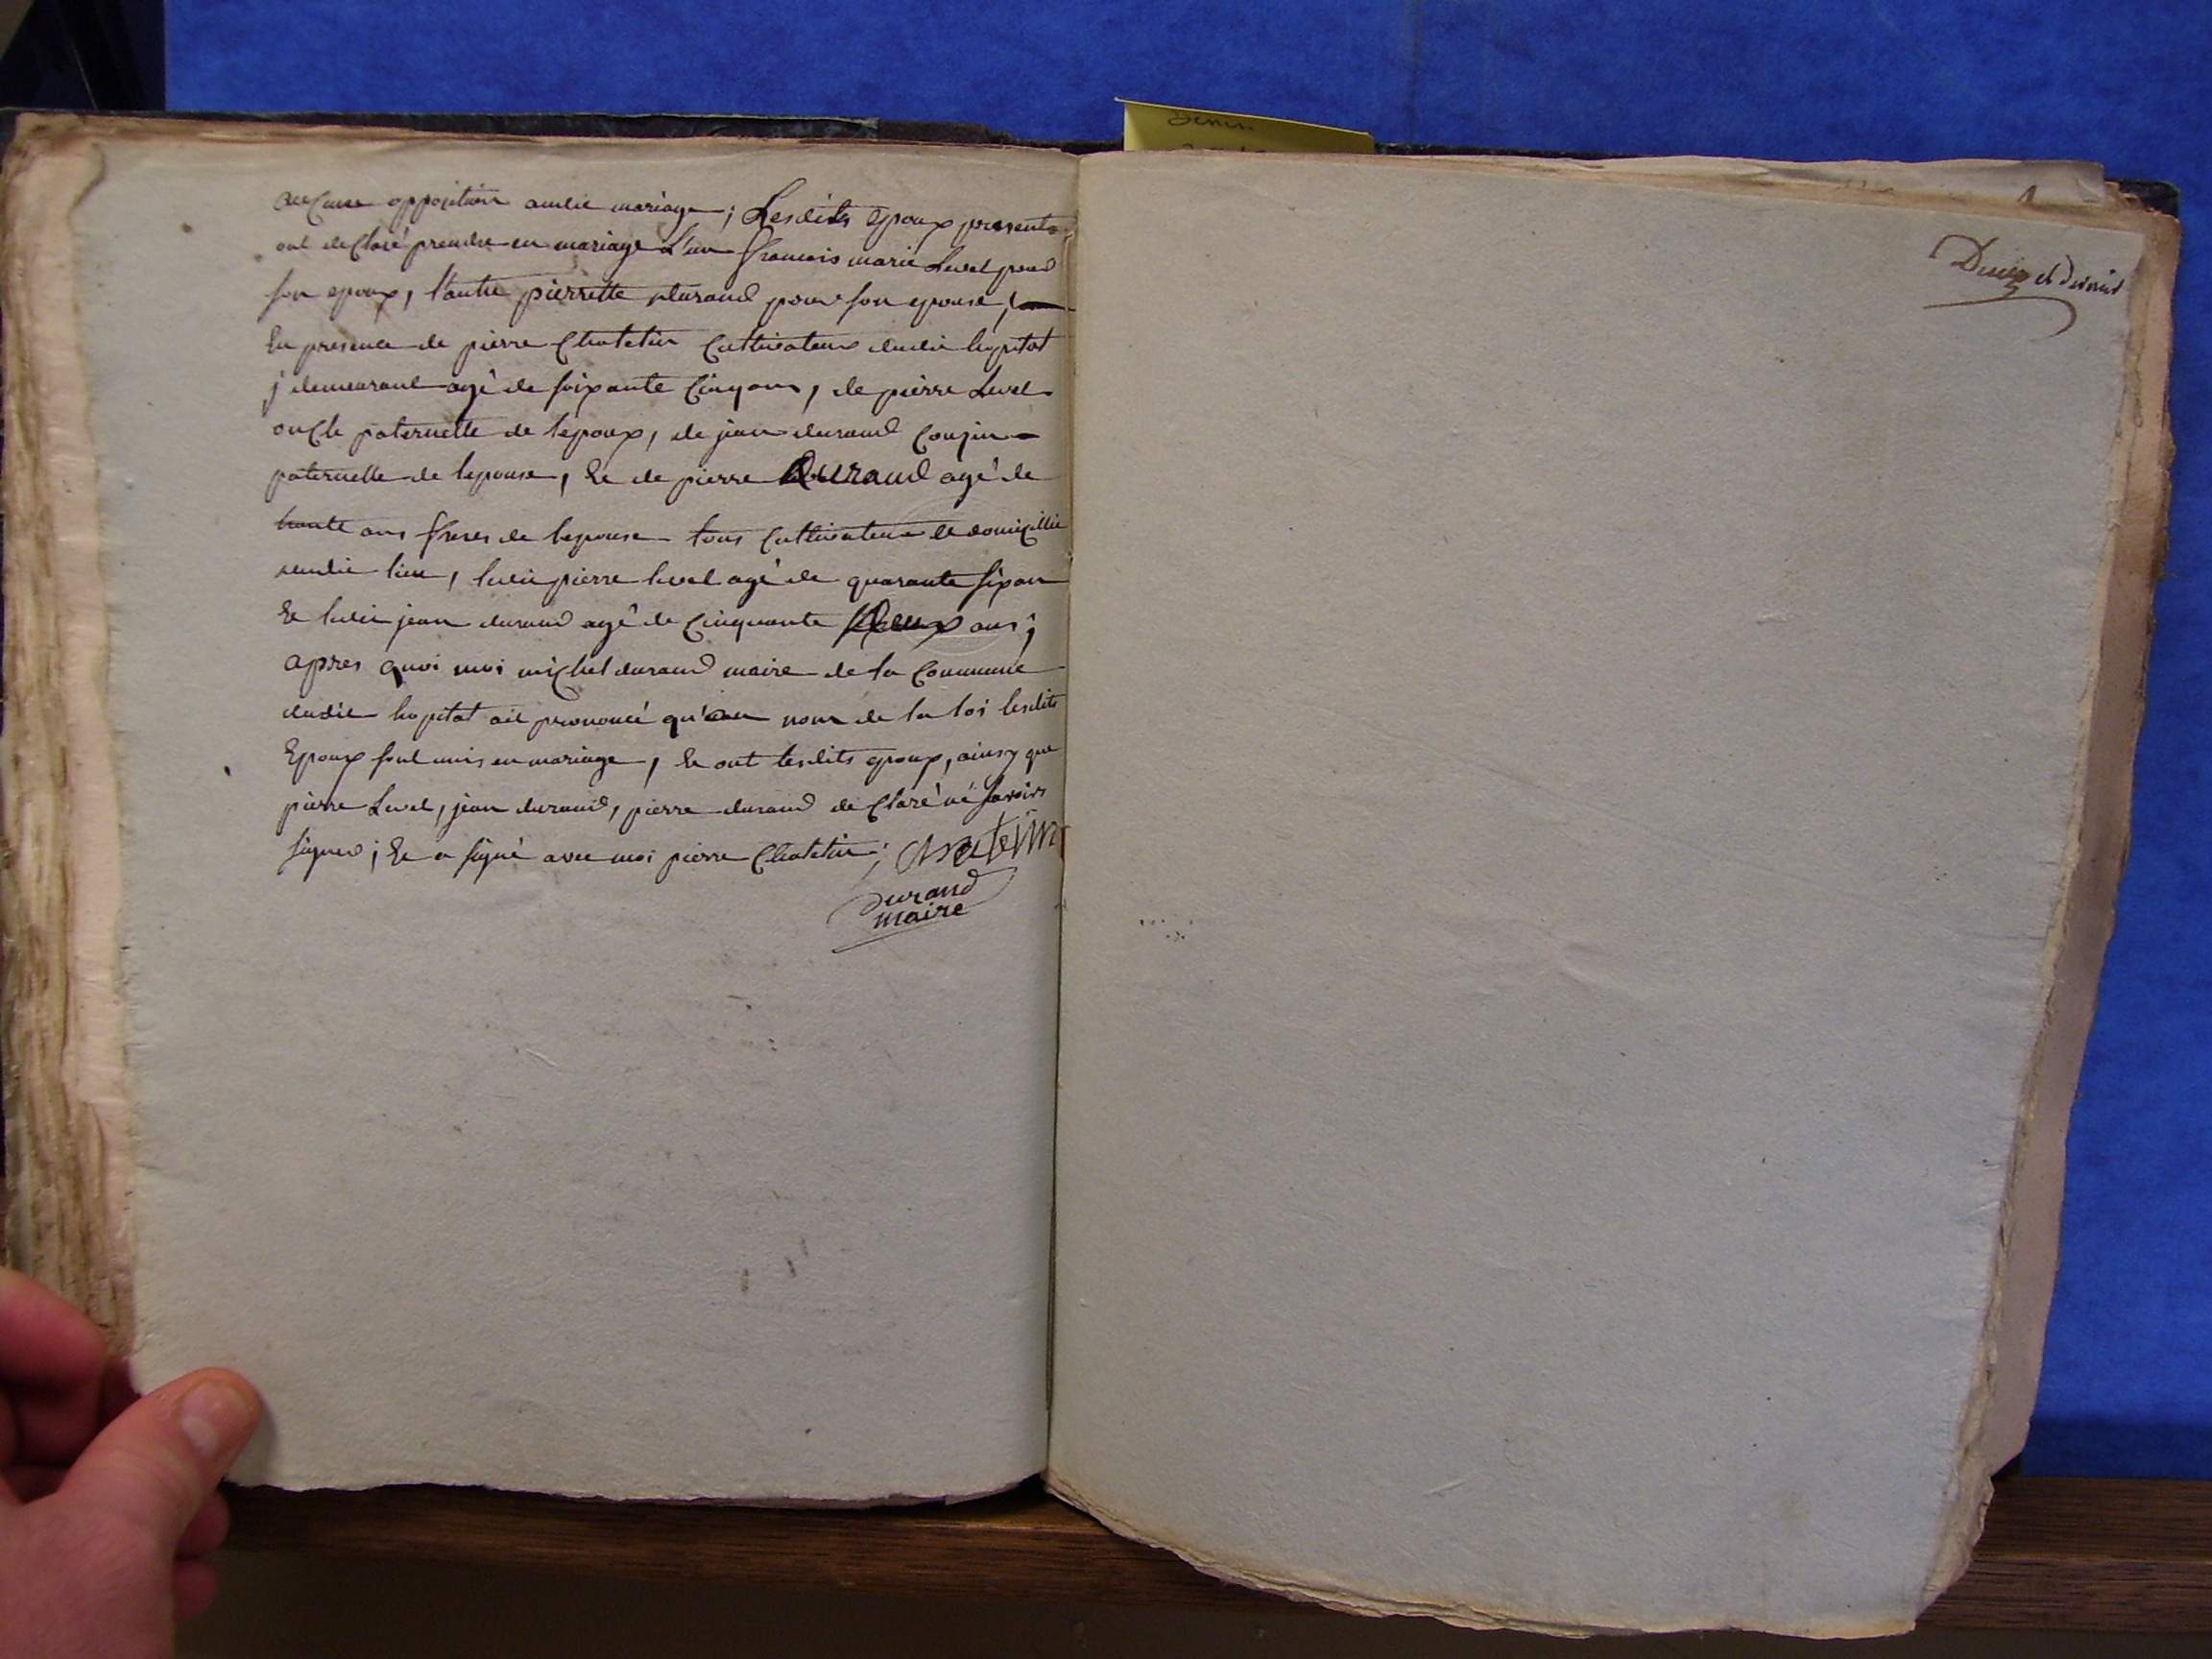 aucune opposition audit mariage ; Lesdits Epoux presents
ont declaré prendre en mariage L'un francois marie Level pour
son epoux, l'autre pierrette durand pour son epouse ;
En presence de pierre Chatelin Cultivateur dudit hopital
y demeurant agé de soixante Cinq ans, de pierre Level
oncle paternelle de lepoux, de jean durand Cousin
paternelle de lepouse, Et de pierre Durand agé de
trente ans freres de lepouse tous Cultivateur et domicillié
audit lieu, ledit pierre level agé de quarante six ans
Et ledit jean durand agé de Cinquante Deux ans ;
apres quoi moi michel durand maire de la Commune
dudit hopital ait prononcé qu'au nom de la loi lesdits
Epoux sont unis en mariage, Et ont lesdits epoux, ainsy que
pierre Level, jean durand, pierre durand declaré né savoir
signer ; Et a signé avec moi pierre Chatelin ; Chatelin
Durand
maire
et dernier